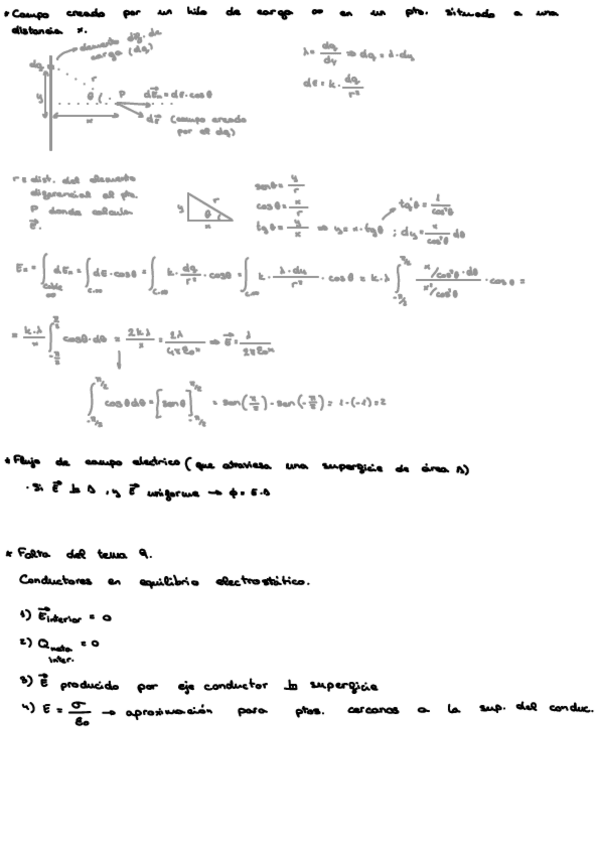 * Campo creado por un hilo de carga ∞ en un pto. situado a una
distancia x.
elemento dif. de
carga (dq)
dq
y
r
θ
P
x
dEₙ = dE·cosθ
dE⃗ (campo creado
por el dq)
λ = dq/dy ⇒ dq = λ·dy
dE = k · dq/r²
r = dist. del elemento
diferencial al pto.
P donde calculo
E⃗.
y
r
θ
x
senθ = y/r
cosθ = x/r
tgθ = y/x ⇒ y = x·tgθ ; dy = x/cos²θ dθ
tg'θ = 1/cos²θ
Eₙ = ∫ dEₙ = ∫ dE·cosθ = ∫ k· dq/r² · cosθ = ∫ k · λ·dy/r² · cosθ = k·λ ∫ (x/cos²θ · dθ)/(x²/cos²θ) · cosθ =
= k·λ/x ∫ cosθ·dθ = 2kλ/x = 2λ/4πε₀x ⇒ E⃗ = λ/2πε₀x
∫ cosθ dθ = [senθ] = sen(π/2) - sen(-π/2) = 1-(-1) = 2
* Flujo de campo electrico (que atraviesa una superficie de área A)
· Si E⃗ ⊥ A , y E⃗ uniforme → ϕ = E·A
* Falta del tema 9.
Conductores en equilibrio electrostático.
1) E⃗ interior = 0
2) Q neta inter. = 0
3) E⃗ producido por eje conductor ⊥ superficie
4) E = σ/ε₀ → aproximación para ptos. cercanos a la sup. del conduc.